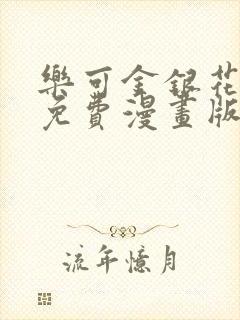 樂可金銀花
免費漫畫版
流年憶月